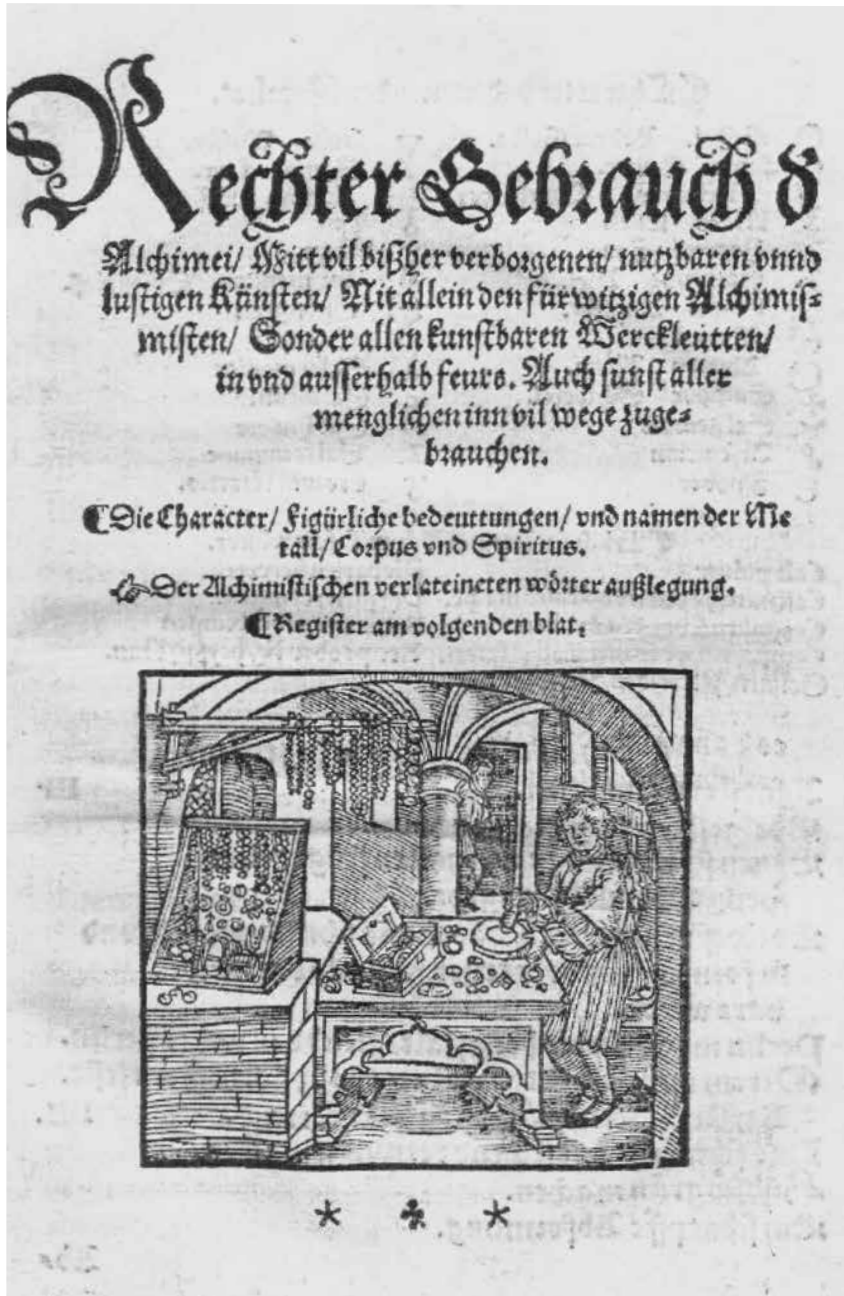 Rechter Gebrauch d
Alchimei/ Mitt vil bißher verborgenen/ nutzbaren vnnd
lustigen Künsten/ Nit allein den fürwitzigen Alchimis⸗
misten/ Sonder allen kunstbaren Werckleutten/
in vnd ausserhalb feurs. Auch sunst aller
menglichen inn vil wege zuge⸗
brauchen.
¶ Die Character/ Figürliche bedeuttungen/ vnd namen der Me
tall/ Corpus vnd Spiritus.
☞ Der Alchimistischen verlateineten wörter außlegung.
¶ Register am volgenden blat.